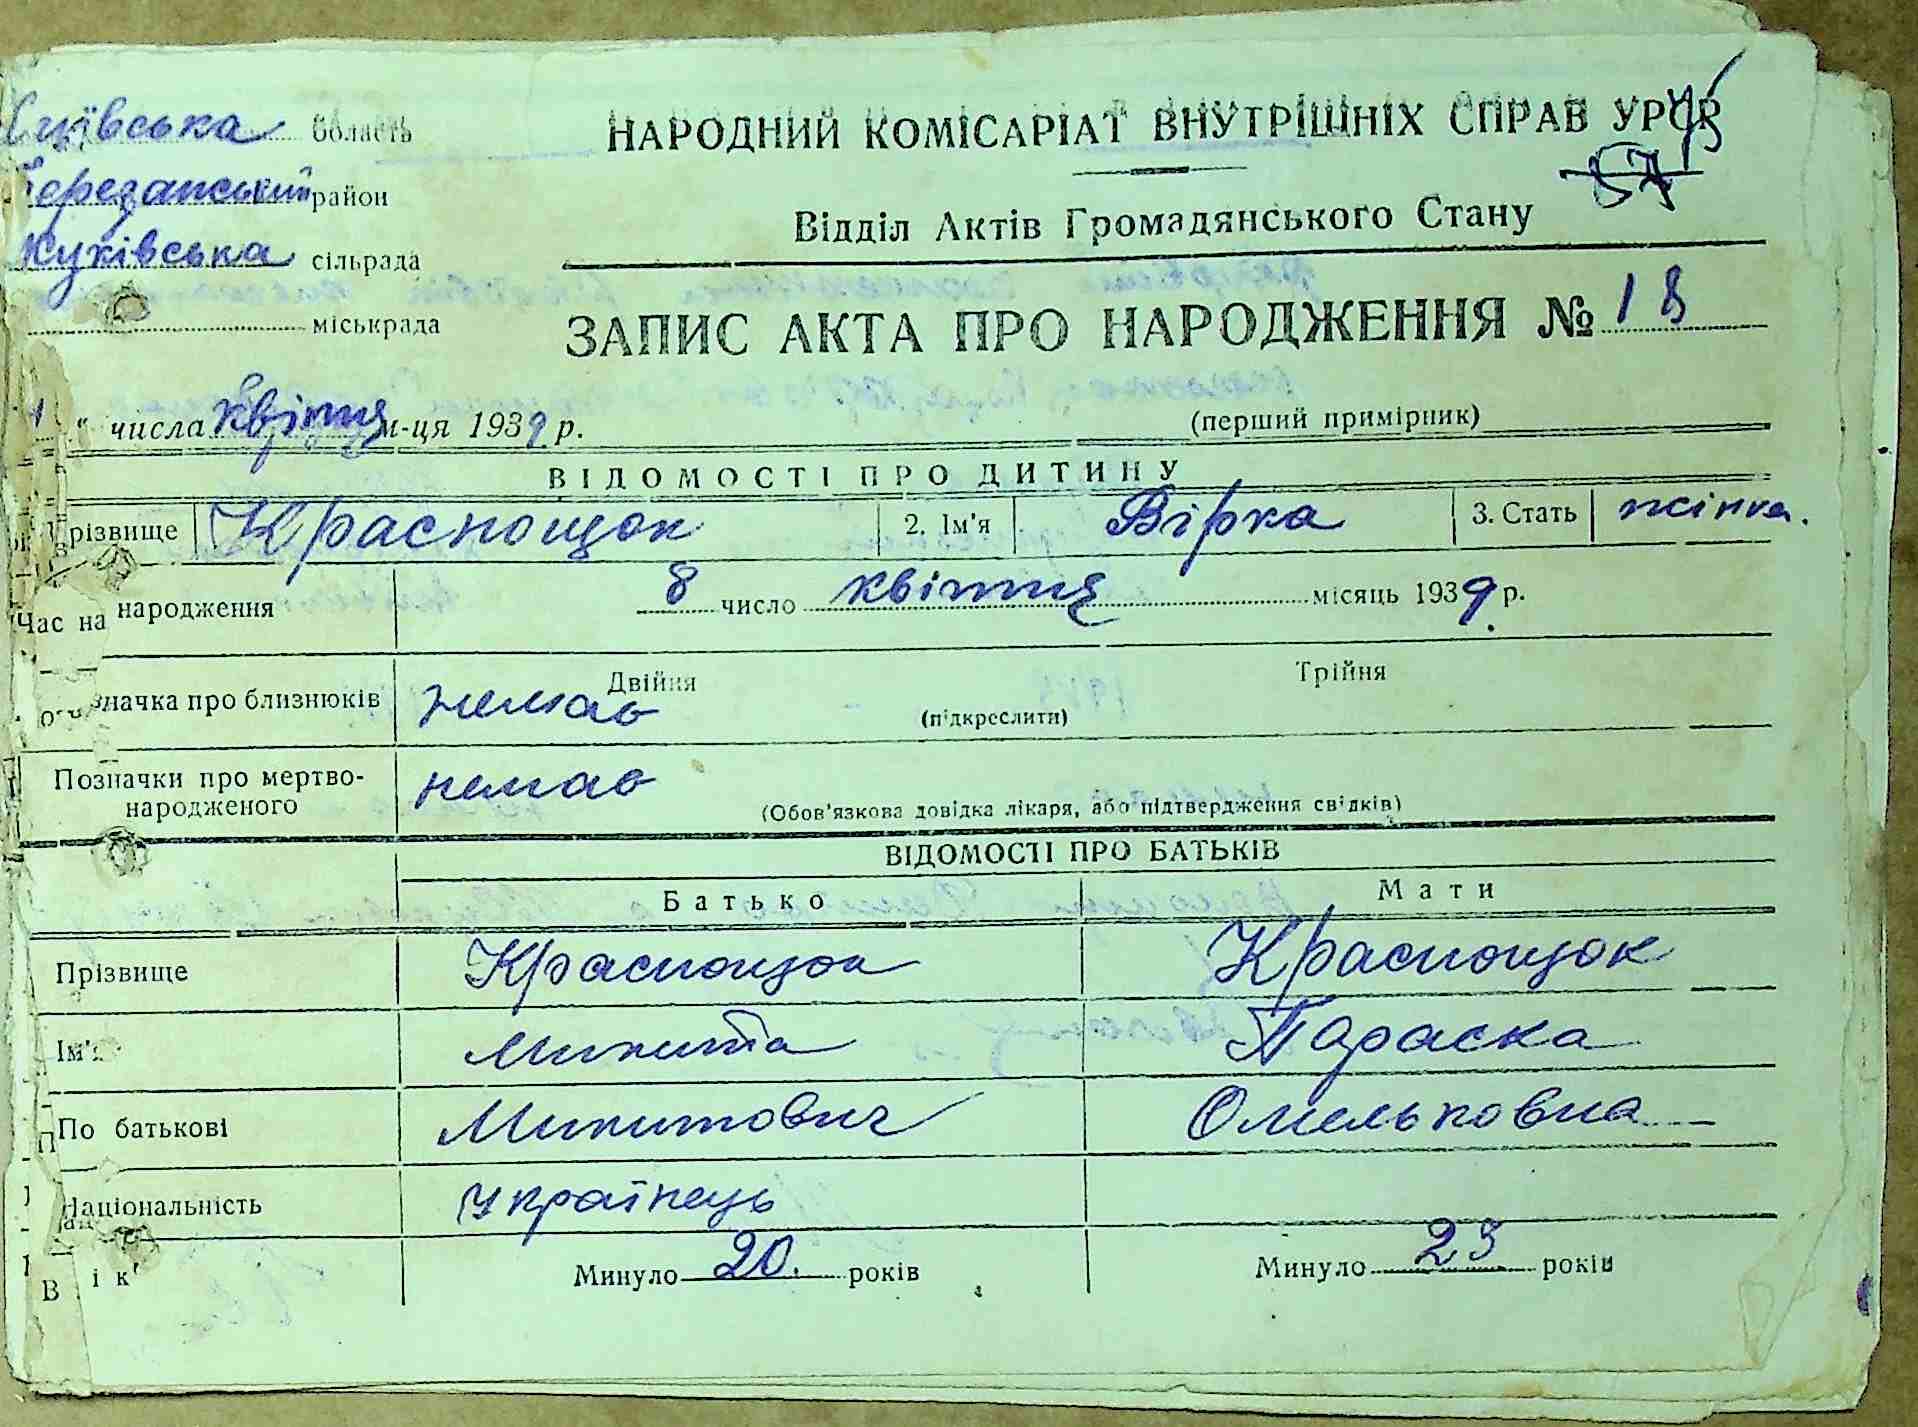 Київська область
Березанський район
Жуківська сільрада
міськрада
НАРОДНИЙ КОМІСАРІАТ ВНУТРІШНІХ СПРАВ УРСР
57
Відділ Актів Громадянського Стану
ЗАПИС АКТА ПРО НАРОДЖЕННЯ № 18
" числа квітня м-ця 1939 р.
(перший примірник)
ВІДОМОСТІ ПРО ДИТИНУ
Прізвище Краснощок 2. Ім'я Вірка 3. Стать жінка.
Час народження 8 число квітня місяць 1939 р.
означка про близнюків немає Двійня (підкреслити) Трійня
Позначки про мертво-
народженого немає (Обов'язкова довідка лікаря, або підтвердження свідків)
ВІДОМОСТІ ПРО БАТЬКІВ
Батько Мати
Прізвище Краснощок Краснощок
Ім'я Микита Параска
По батькові Микитович Омельковна
Національність українець
Вік Минуло 20. років Минуло 23 років